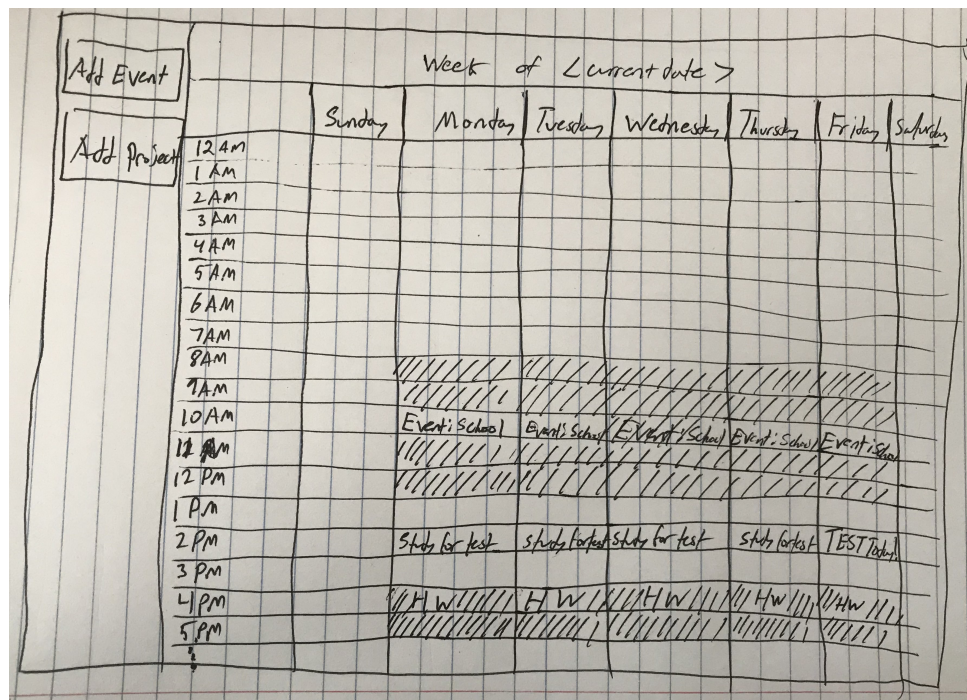 Add Event
Add Project
Week of <current date>
Sunday Monday Tuesday Wednesday Thursday Friday Saturday
12 AM
1 AM
2 AM
3 AM
4 AM
5 AM
6 AM
7AM
8AM
9AM
10 AM
Event: School Event: School Event: School Event: School Event: School
11 AM
12 PM
1 PM
2 PM Study for test Study for test Study for test Study for test TEST Today!
3 PM
4 PM HW HW HW HW HW
5 PM